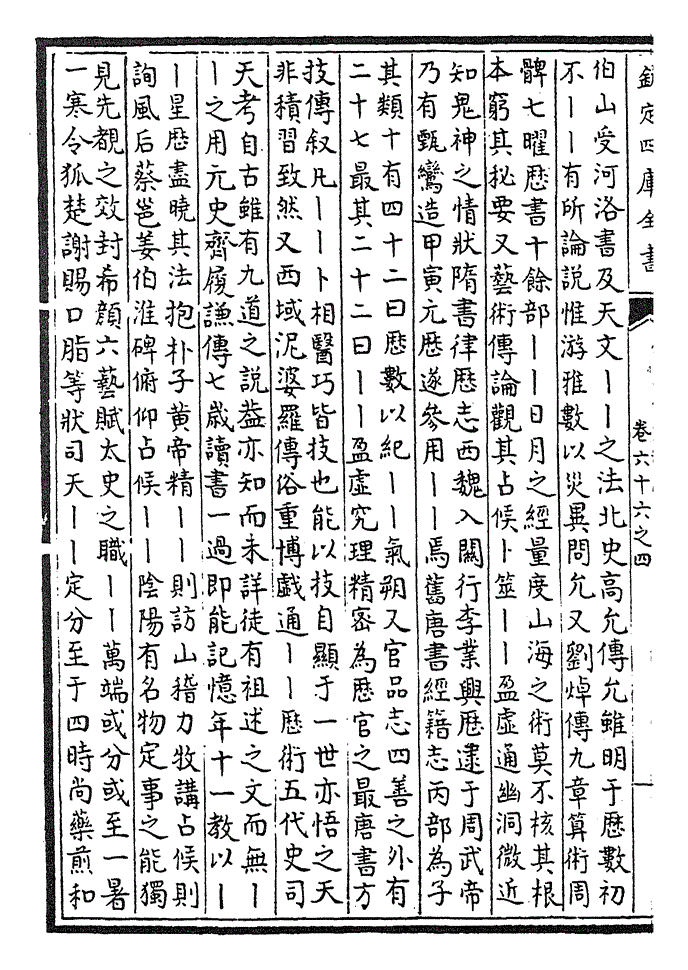 欽定四庫全書
卷六十六之四
伯山受河洛書及天文丨丨之法北史高允傳允雖明于歴數初
不丨丨有所論說惟游雅數以災異問允又劉焯傳九章算術周
髀七曜歴書十餘部丨丨日月之經量度山海之術莫不核其根
本窮其秘要又藝術傳論觀其占候卜筮丨丨盈虛通幽洞微近
知鬼神之情狀隋書律歴志西魏入關行李業興歴逮于周武帝
乃有甄鸞造甲寅元歴遂參用丨丨焉舊唐書經籍志丙部為子
其類十有四十二曰歴數以紀丨丨氣朔又官品志四善之外有
二十七最其二十二曰丨丨盈虛究理精密為歴官之最唐書方
技傳叙凡丨丨卜相醫巧皆技也能以技自顯于一世亦悟之天
非積習致然又西域泥婆羅傳俗重博戲通丨丨歴術五代史司
天考自古雖有九道之説葢亦知而未詳徒有祖述之文而無丨
丨之用元史齊履謙傳七歲讀書一過即能記憶年十一教以丨
丨星歴盡曉其法抱朴子黃帝精丨丨則訪山稽力牧講占候則
詢風后蔡邕姜伯淮碑俯仰占候丨丨陰陽有名物定事之能獨
見先覩之效封希顔六藝賦太史之職丨丨萬端或分或至一暑
一寒令狐楚謝賜口脂等狀司天丨丨定分至于四時尚藥煎和